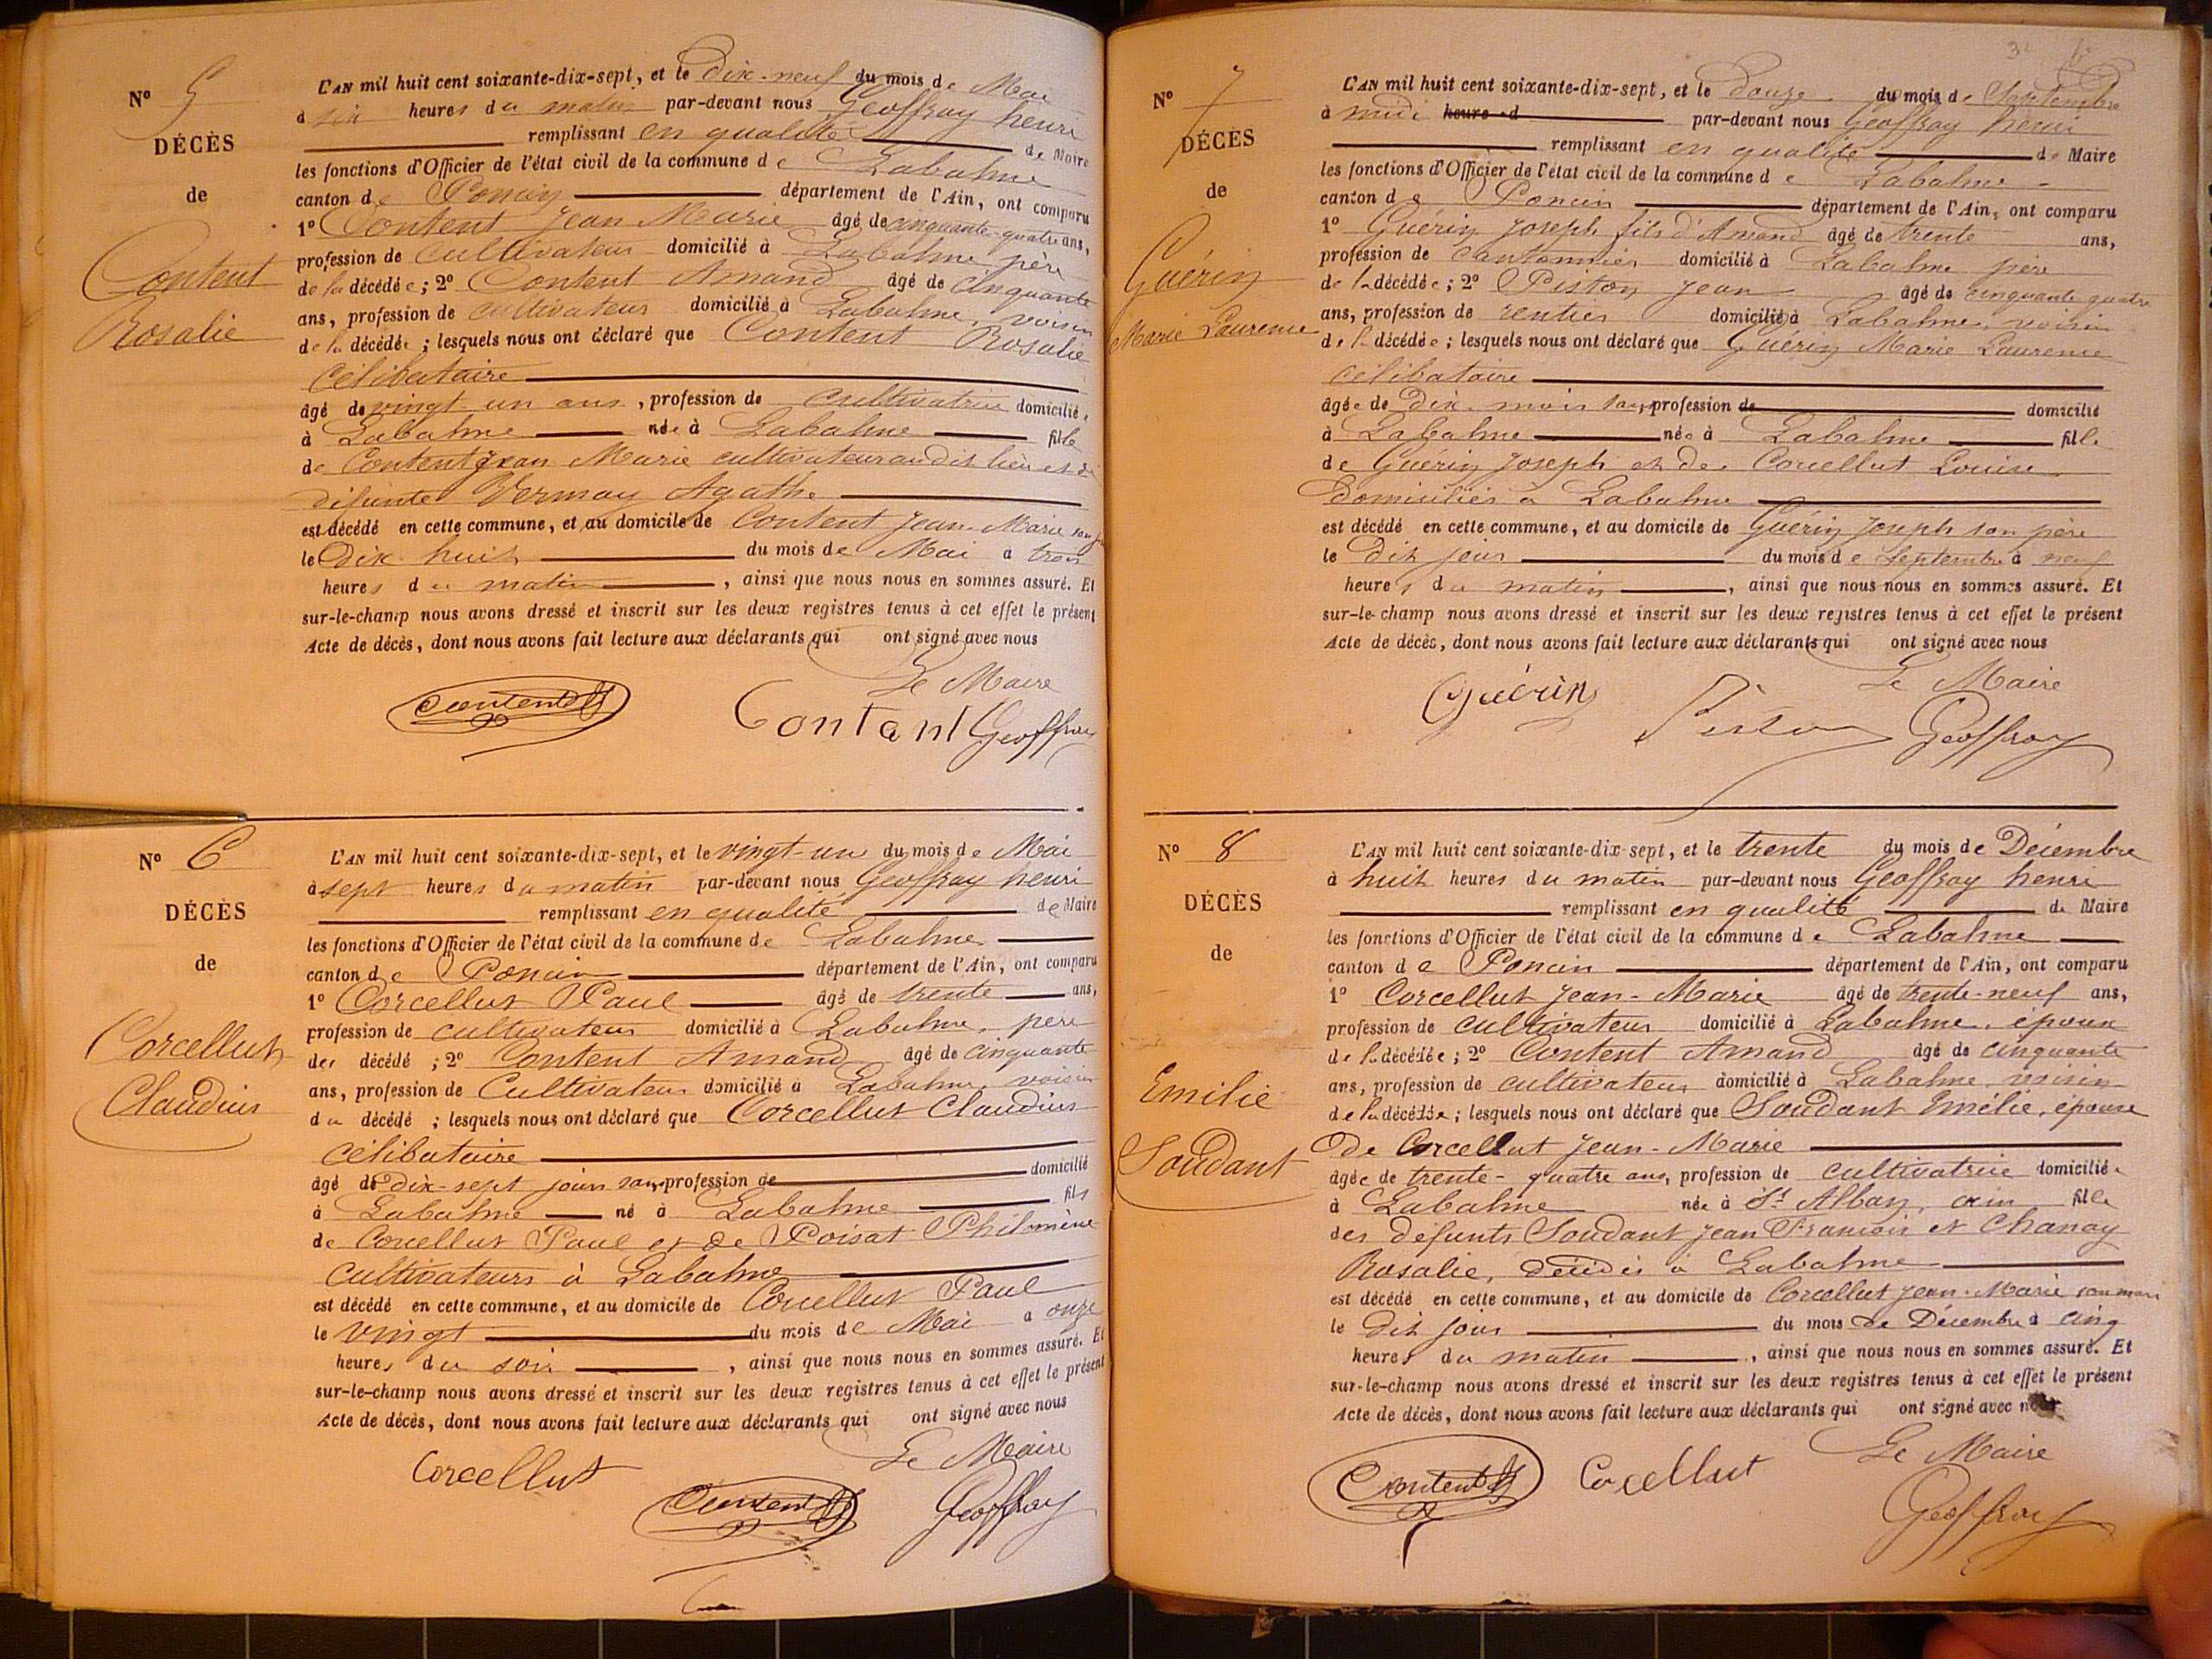 N° 5
DÉCÈS
de
Content
Rosalie
L'AN mil huit cent soixante-dix-sept, et le dix-neuf du mois de Mai
à six heures du matin par-devant nous Geoffray henri
remplissant en qualité de Maire
les fonctions d'Officier de l'état civil de la commune de Labalme
canton de Poncin département de l'Ain, ont comparu
1° Content Jean Marie âgé de cinquante-quatre ans,
profession de cultivateur domicilié à Labalme père
de la décédée; 2° Content Amand âgé de cinquante
ans, profession de cultivateur domicilié à Labalme, voisin
de la décédée; lesquels nous ont déclaré que Content Rosalie
célibataire
âgé de vingt un ans, profession de cultivatrice domicilié
à Labalme née à Labalme fille
de Content Jean Marie cultivateur audit lieu et de
défunte Vermay Agathe
est décédé en cette commune, et au domicile de Content Jean-Marie son
le Dix huit du mois de Mai à trois
heures du matin, ainsi que nous nous en sommes assuré. Et
sur-le-champ nous avons dressé et inscrit sur les deux registres tenus à cet effet le présent
Acte de décès, dont nous avons fait lecture aux déclarants qui ont signé avec nous
Le Maire
Content Contant Geoffray
N° 6
DÉCÈS
de
Corcellut
Claudius
L'AN mil huit cent soixante-dix-sept, et le vingt-un du mois de Mai
à sept heures du matin par-devant nous Geoffray henri
remplissant en qualité de Maire
les fonctions d'Officier de l'état civil de la commune de Labalme
canton de Poncin département de l'Ain, ont comparu
1° Corcellut Paul âgé de trente ans,
profession de cultivateur domicilié à Labalme, père
du décédé; 2° Content Amand âgé de cinquante
ans, profession de Cultivateur domicilié à Labalme, voisin
du décédé; lesquels nous ont déclaré que Corcellut Claudius
célibataire
âgé de dix-sept jours sans profession de domicilié
à Labalme né à Labalme fils
de Corcellut Paul et de Poisat Philomène
Cultivateurs à Labalme
est décédé en cette commune, et au domicile de Corcellut Paul
le vingt du mois de Mai à onze
heures du soir, ainsi que nous nous en sommes assuré. Et
sur-le-champ nous avons dressé et inscrit sur les deux registres tenus à cet effet le présent
Acte de décès, dont nous avons fait lecture aux déclarants qui ont signé avec nous
Le Maire
Corcellut Content Geoffray
N° 7
DÉCÈS
de
Guérin
Marie Laurence
L'AN mil huit cent soixante-dix-sept, et le douze du mois de Septembre
à midi heure d par-devant nous Geoffray henri
remplissant en qualité de Maire
les fonctions d'Officier de l'état civil de la commune de Labalme
canton de Poncin département de l'Ain, ont comparu
1° Guérin Joseph fils d'Amand âgé de trente ans,
profession de Cantonnier domicilié à Labalme père
de la décédée; 2° Piston Jean âgé de cinquante quatre
ans, profession de rentier domicilié à Labalme, voisin
de la décédée; lesquels nous ont déclaré que Guérin Marie Laurence
célibataire
âgée de dix mois sans profession de domicilié
à Labalme née à Labalme fille
de Guérin Joseph et de Corcellut Louise
domiciliés à Labalme
est décédé en cette commune, et au domicile de Guérin Joseph son père
le dit jour du mois de Septembre à neuf
heures du matin, ainsi que nous nous en sommes assuré. Et
sur-le-champ nous avons dressé et inscrit sur les deux registres tenus à cet effet le présent
Acte de décès, dont nous avons fait lecture aux déclarants qui ont signé avec nous
Le Maire
Guérin Piston Geoffray
N° 8
DÉCÈS
de
Emilie
Soudant
L'AN mil huit cent soixante-dix-sept, et le trente du mois de Décembre
à huit heures du matin par-devant nous Geoffray henri
remplissant en qualité de Maire
les fonctions d'Officier de l'état civil de la commune de Labalme
canton de Poncin département de l'Ain, ont comparu
1° Corcellut Jean-Marie âgé de trente-neuf ans,
profession de cultivateur domicilié à Labalme, époux
de la décédée; 2° Content Amand âgé de cinquante
ans, profession de cultivateur domicilié à Labalme voisin
de la décédée; lesquels nous ont déclaré que Soudant Emélie, épouse
De Corcellut Jean-Marie
âgée de trente-quatre ans, profession de cultivatrice domicilié
à Labalme née à St Alban, ain fille
des défunts Soudant Jean François et Chanay
Rosalie, décédés à Labalme
est décédé en cette commune, et au domicile de Corcellut Jean-Marie son mari
le dit jour du mois de Décembre à cinq
heures du matin, ainsi que nous nous en sommes assuré. Et
sur-le-champ nous avons dressé et inscrit sur les deux registres tenus à cet effet le présent
Acte de décès, dont nous avons fait lecture aux déclarants qui ont signé avec nous
Le Maire
Content Corcellut Geoffray